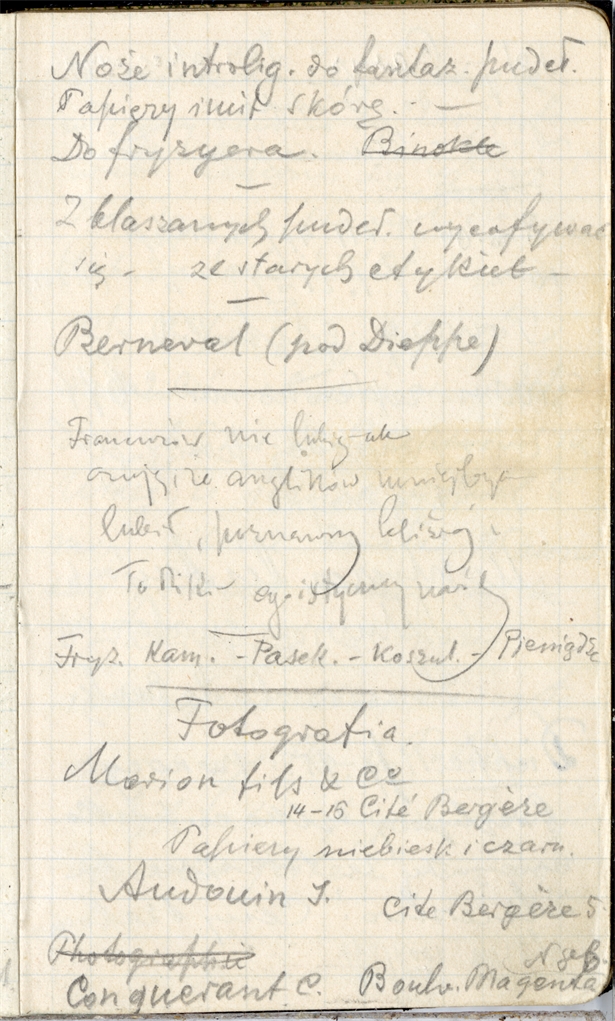 Noże introlig. do fantaz. pudeł.
Papiery imit skórę. —
Do fryzyera. Binokle
Z blaszanych pudeł. wycofywać
się - ze starych etykiet -
Berneval (pod Dieppe)
Francuzów nie lubię - ale
że anglików mniejbym
lubił, poznawszy bliżej.
egoistyczny
Fryz. Kam. - Pasek. - Koszul. - Pieniądze
Fotografia.
Marion fils & Co
14-16 Cité Bergère
Papiery niebiesk i czarn.
Audouin J.
Cite Bergère 5
Photographie
Conquerant C. Boulv. Magenta